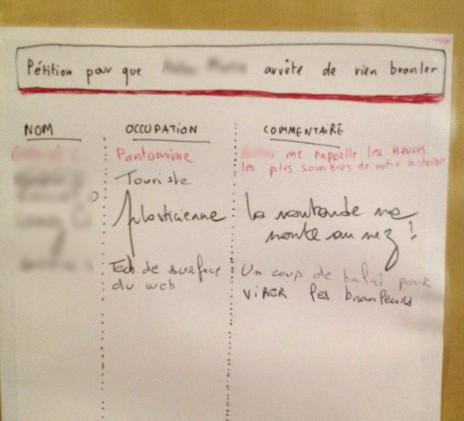 Pétition pour que arrête de rien branler
NOM OCCUPATION COMMENTAIRE
Pantomime me rappelle les heures
les plus sombres de notre histoire
Touriste
plasticienne la moutarde me
monte au nez !
Tech de surface Un coup de balai pour
du web ViRER les branleurs